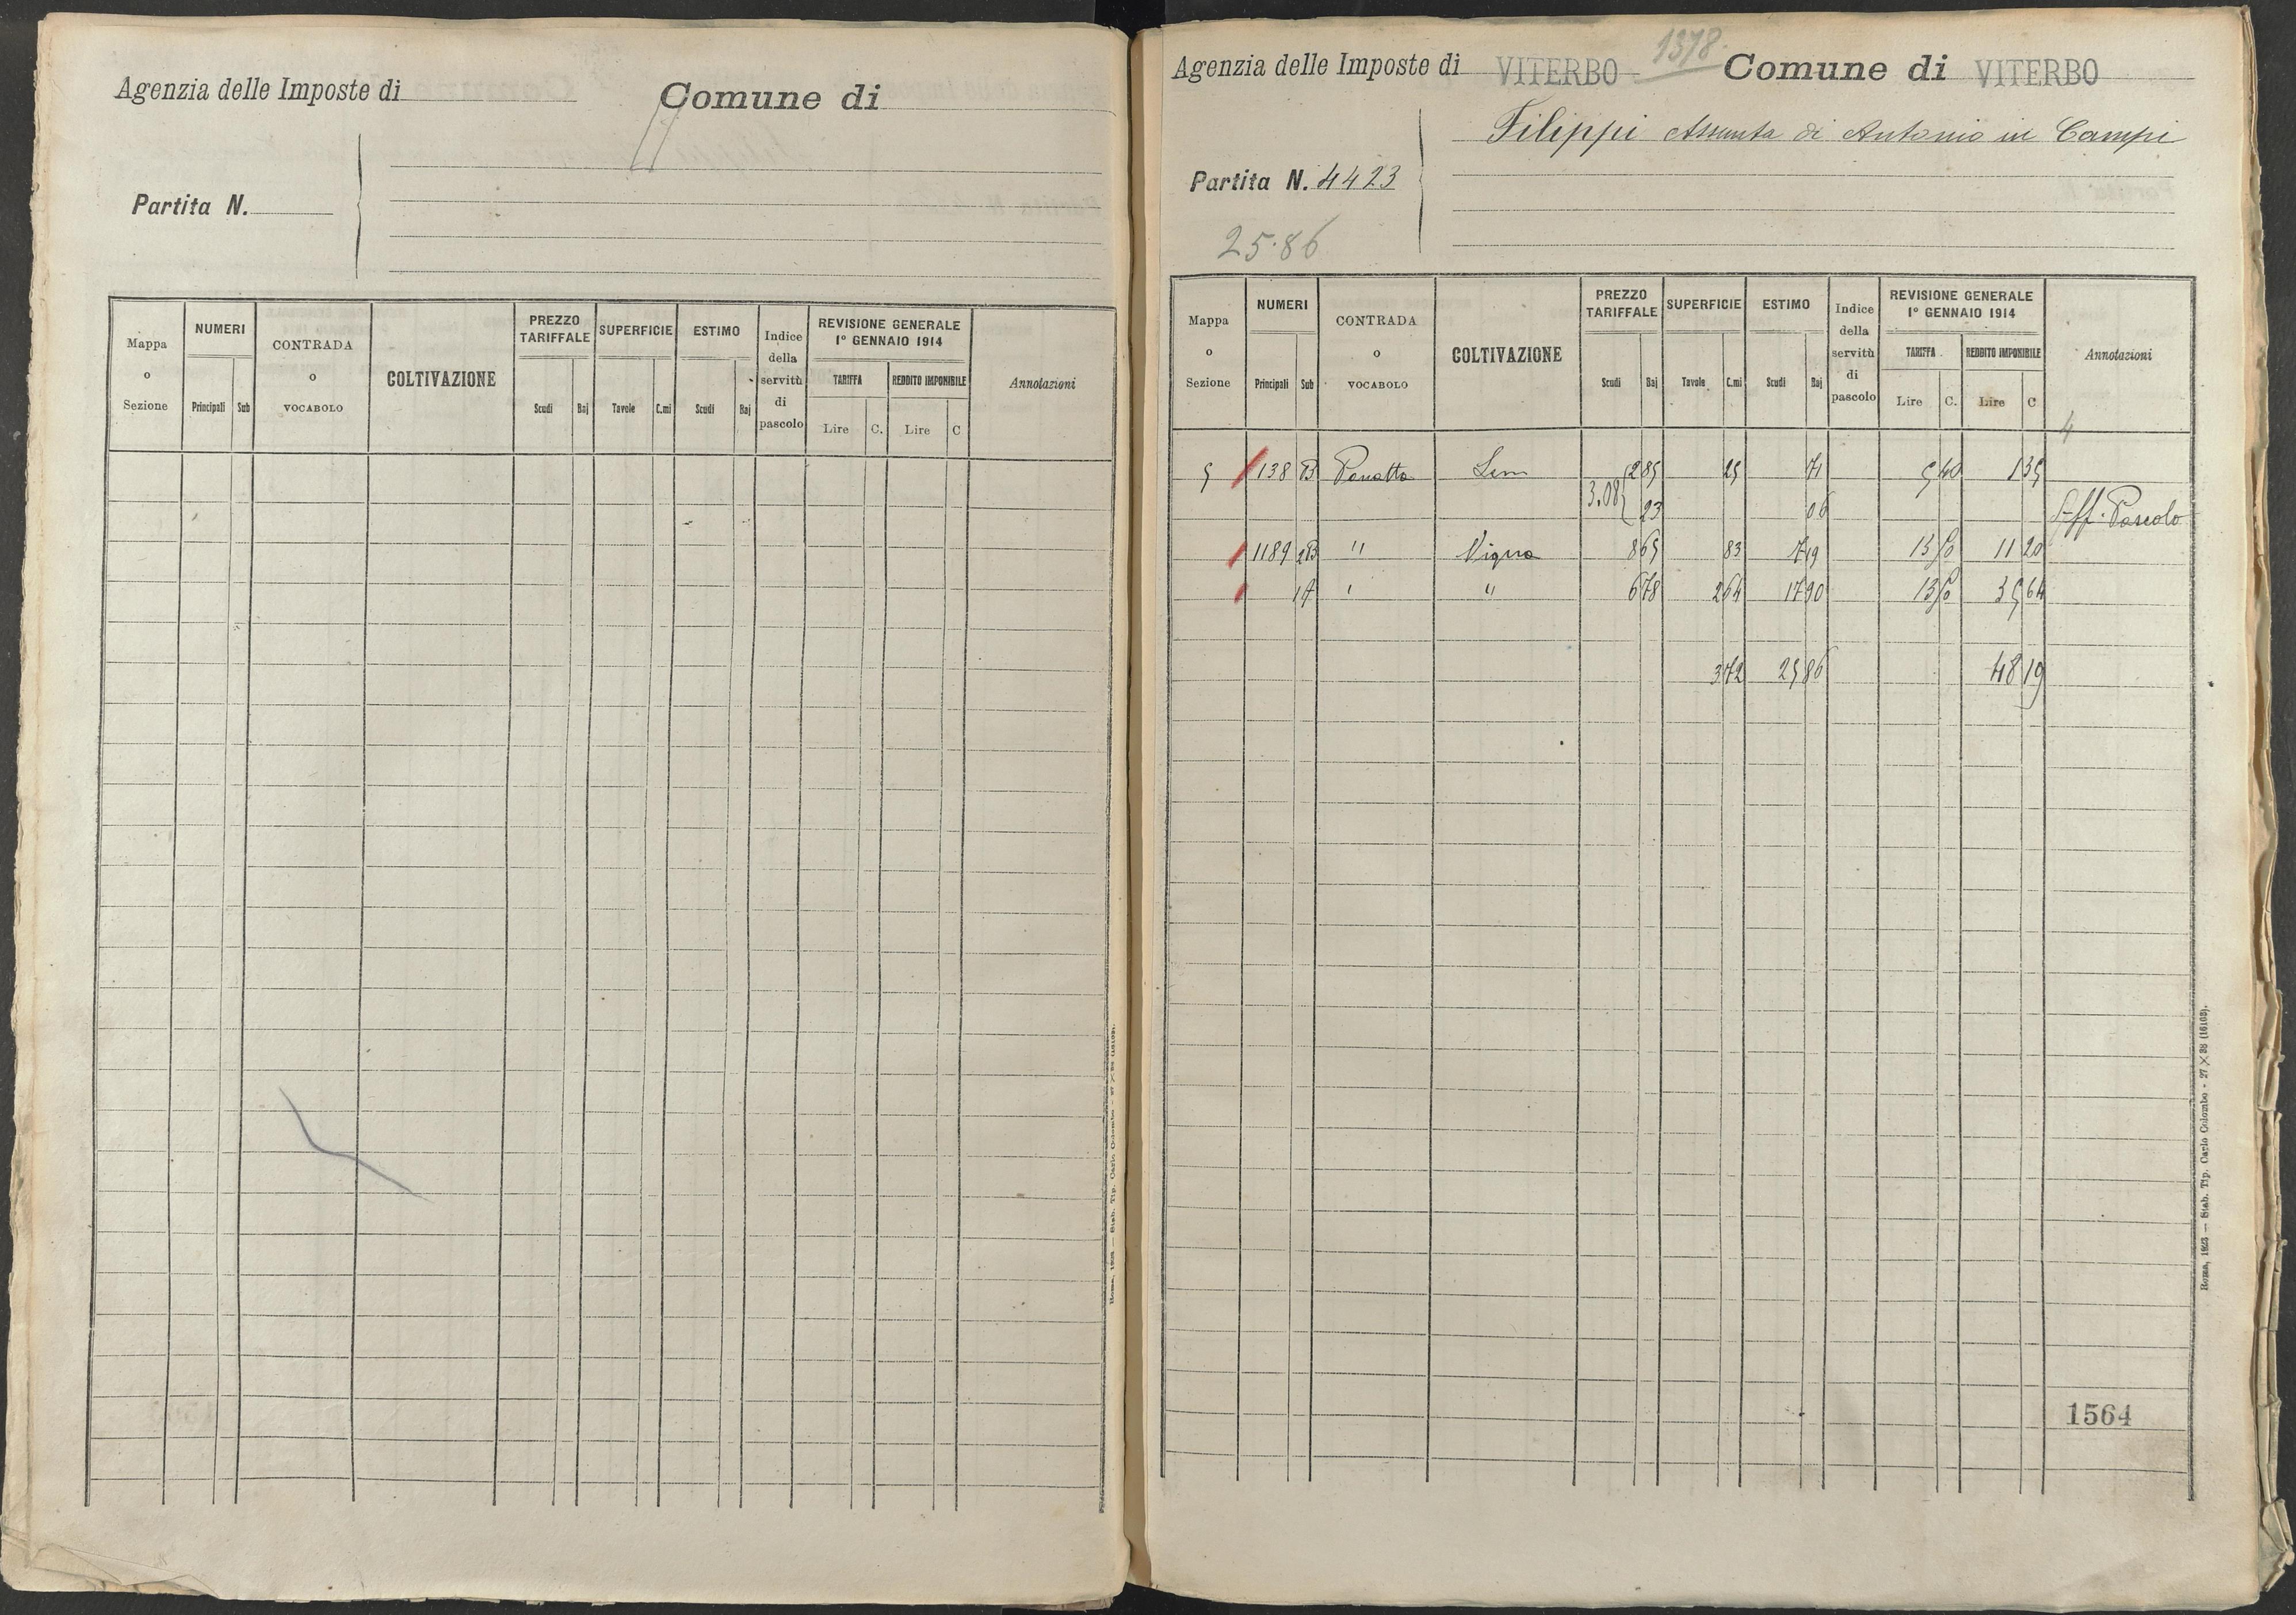 Agenzia delle Imposte di
Comune di
Partita N.
Mappa o Sezione
NUMERI
Principali Sub
CONTRADA o VOCABOLO
COLTIVAZIONE
PREZZO TARIFFALE
Scudi Baj
SUPERFICIE
Tavole C.mi
ESTIMO
Scudi Baj
Indice della servitù di pascolo
REVISIONE GENERALE
1º GENNAIO 1914
TARIFFA
Lire C.
REDDITO IMPONIBILE
Lire C
Annotazioni
Agenzia delle Imposte di VITERBO
1378
Comune di VITERBO
Filippi Assunta di Antonio in Campi
Partita N. 4423
25.86
Mappa o Sezione
NUMERI
Principali Sub
CONTRADA o VOCABOLO
COLTIVAZIONE
PREZZO TARIFFALE
Scudi Baj
SUPERFICIE
Tavole C.mi
ESTIMO
Scudi Baj
Indice della servitù di pascolo
REVISIONE GENERALE
1º GENNAIO 1914
TARIFFA
Lire C.
REDDITO IMPONIBILE
Lire C
Annotazioni
4
5 138 B Sem 2 85 25 71 5 40 1 35
3.08 23 06 Aff. Pascolo
1189 2B " Vigna 8 65 83 7 19 13 50 11 20
1A " " 6 78 2 64 17 90 13 50 35 64
3 72 25 86 48 19
1564
Roma, 1923 — Stab. Tip. Carlo Colombo - 27 X 38 (16163).